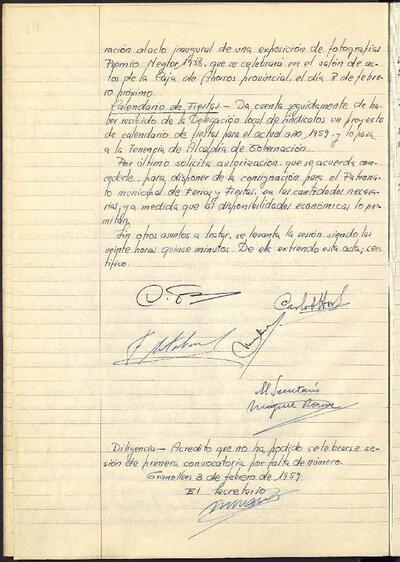 ración al acto inaugural de una exposición de fotografías
Premio Negtor 1958, que se celebrará en el salón de ac-
tos de la Caja de Ahorros provincial, el día 8 de febre-
ro próximo.
Calendario de Fiestas — Da cuenta seguidamente de ha-
ber recibido de la Delegación local de sindicatos un proyecto
de calendario de fiestas para el actual año, 1959. y lo pasa
a la Tenencia de Alcaldía de Gobernación.
Por último solicita autorización, que se acuerda con-
cederle, para disponer de la consignación para el Patrona-
to municipal de Ferias y Fiestas, en las cantidades necesa-
rias, y a medida que las disponibilidades económicas lo per-
mitan.
Sin otros asuntos a tratar, se levanta la sesión, siendo las
veinte horas quince minutos. De ella extiendo esta acta; cer-
tifico.
El Secretario
Diligencia — Acredito que no ha podido celebrarse se-
sión de primera convocatoria por falta de número.
Granollers 3 de febrero de 1959
El Secretario